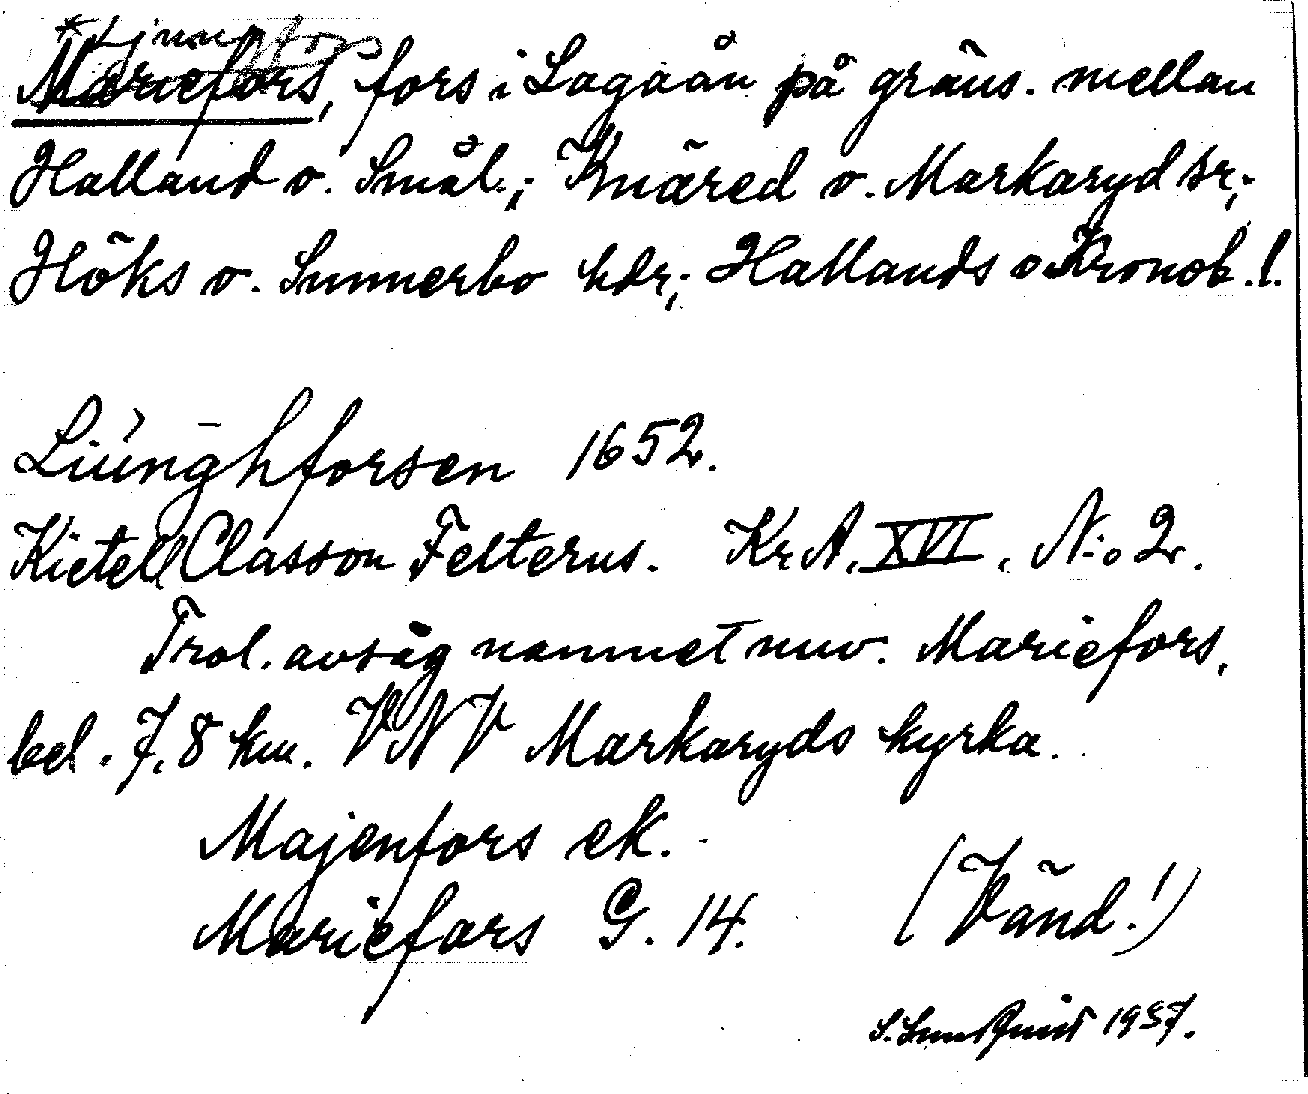 *Ljungfors
Mariefors, fors i Lagaån på gräns. mellan
Halland o. Smål.; Knäred o. Markaryd sr;
Höks o. Sunnerbo hdr; Hallands o Kronob. l.
Liúnghforsen 1652.
Kietell Classon Felterus. Kr.A. XVI, N:o 2.
Trol. avsåg namnet nuv. Mariefors,
bel. 7,8 km. VNV Markaryds kyrka.
Majenfors ek.
Mariefors G. 14.
(Vänd!)
S. Sundquist 1937.